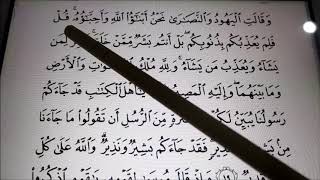 وَقَالَتِ ٱلْيَهُودُ وَٱلنَّصَٰرَىٰ نَحْنُ أَبْنَٰٓؤُا۟ ٱللَّهِ وَأَحِبَّٰٓؤُهُۥ ۚ قُلْ
فَلِمَ يُعَذِّبُكُم بِذُنُوبِكُم ۖ بَلْ أَنتُم بَشَرٌ مِّمَّنْ خَلَقَ ۚ لِمَن
يَشَآءُ وَيُعَذِّبُ مَن يَشَآءُ ۚ وَلِلَّهِ مُلْكُ ٱلسَّمَٰوَٰتِ وَٱلْأَرْضِ
وَمَا بَيْنَهُمَا ۖ وَإِلَيْهِ ٱلْمَصِيرُ يَٰٓأَهْلَ ٱلْكِتَٰبِ قَدْ جَآءَكُمْ
رَسُولُنَا يُبَيِّنُ لَكُمْ فَتْرَةٍ مِّنَ ٱلرُّسُلِ أَن تَقُولُوا۟ مَا جَآءَنَا
مِنۢ بَشِيرٍ فَقَدْ جَآءَكُم بَشِيرٌ وَنَذِيرٌ ۗ وَٱللَّهُ عَلَىٰ كُلِّ